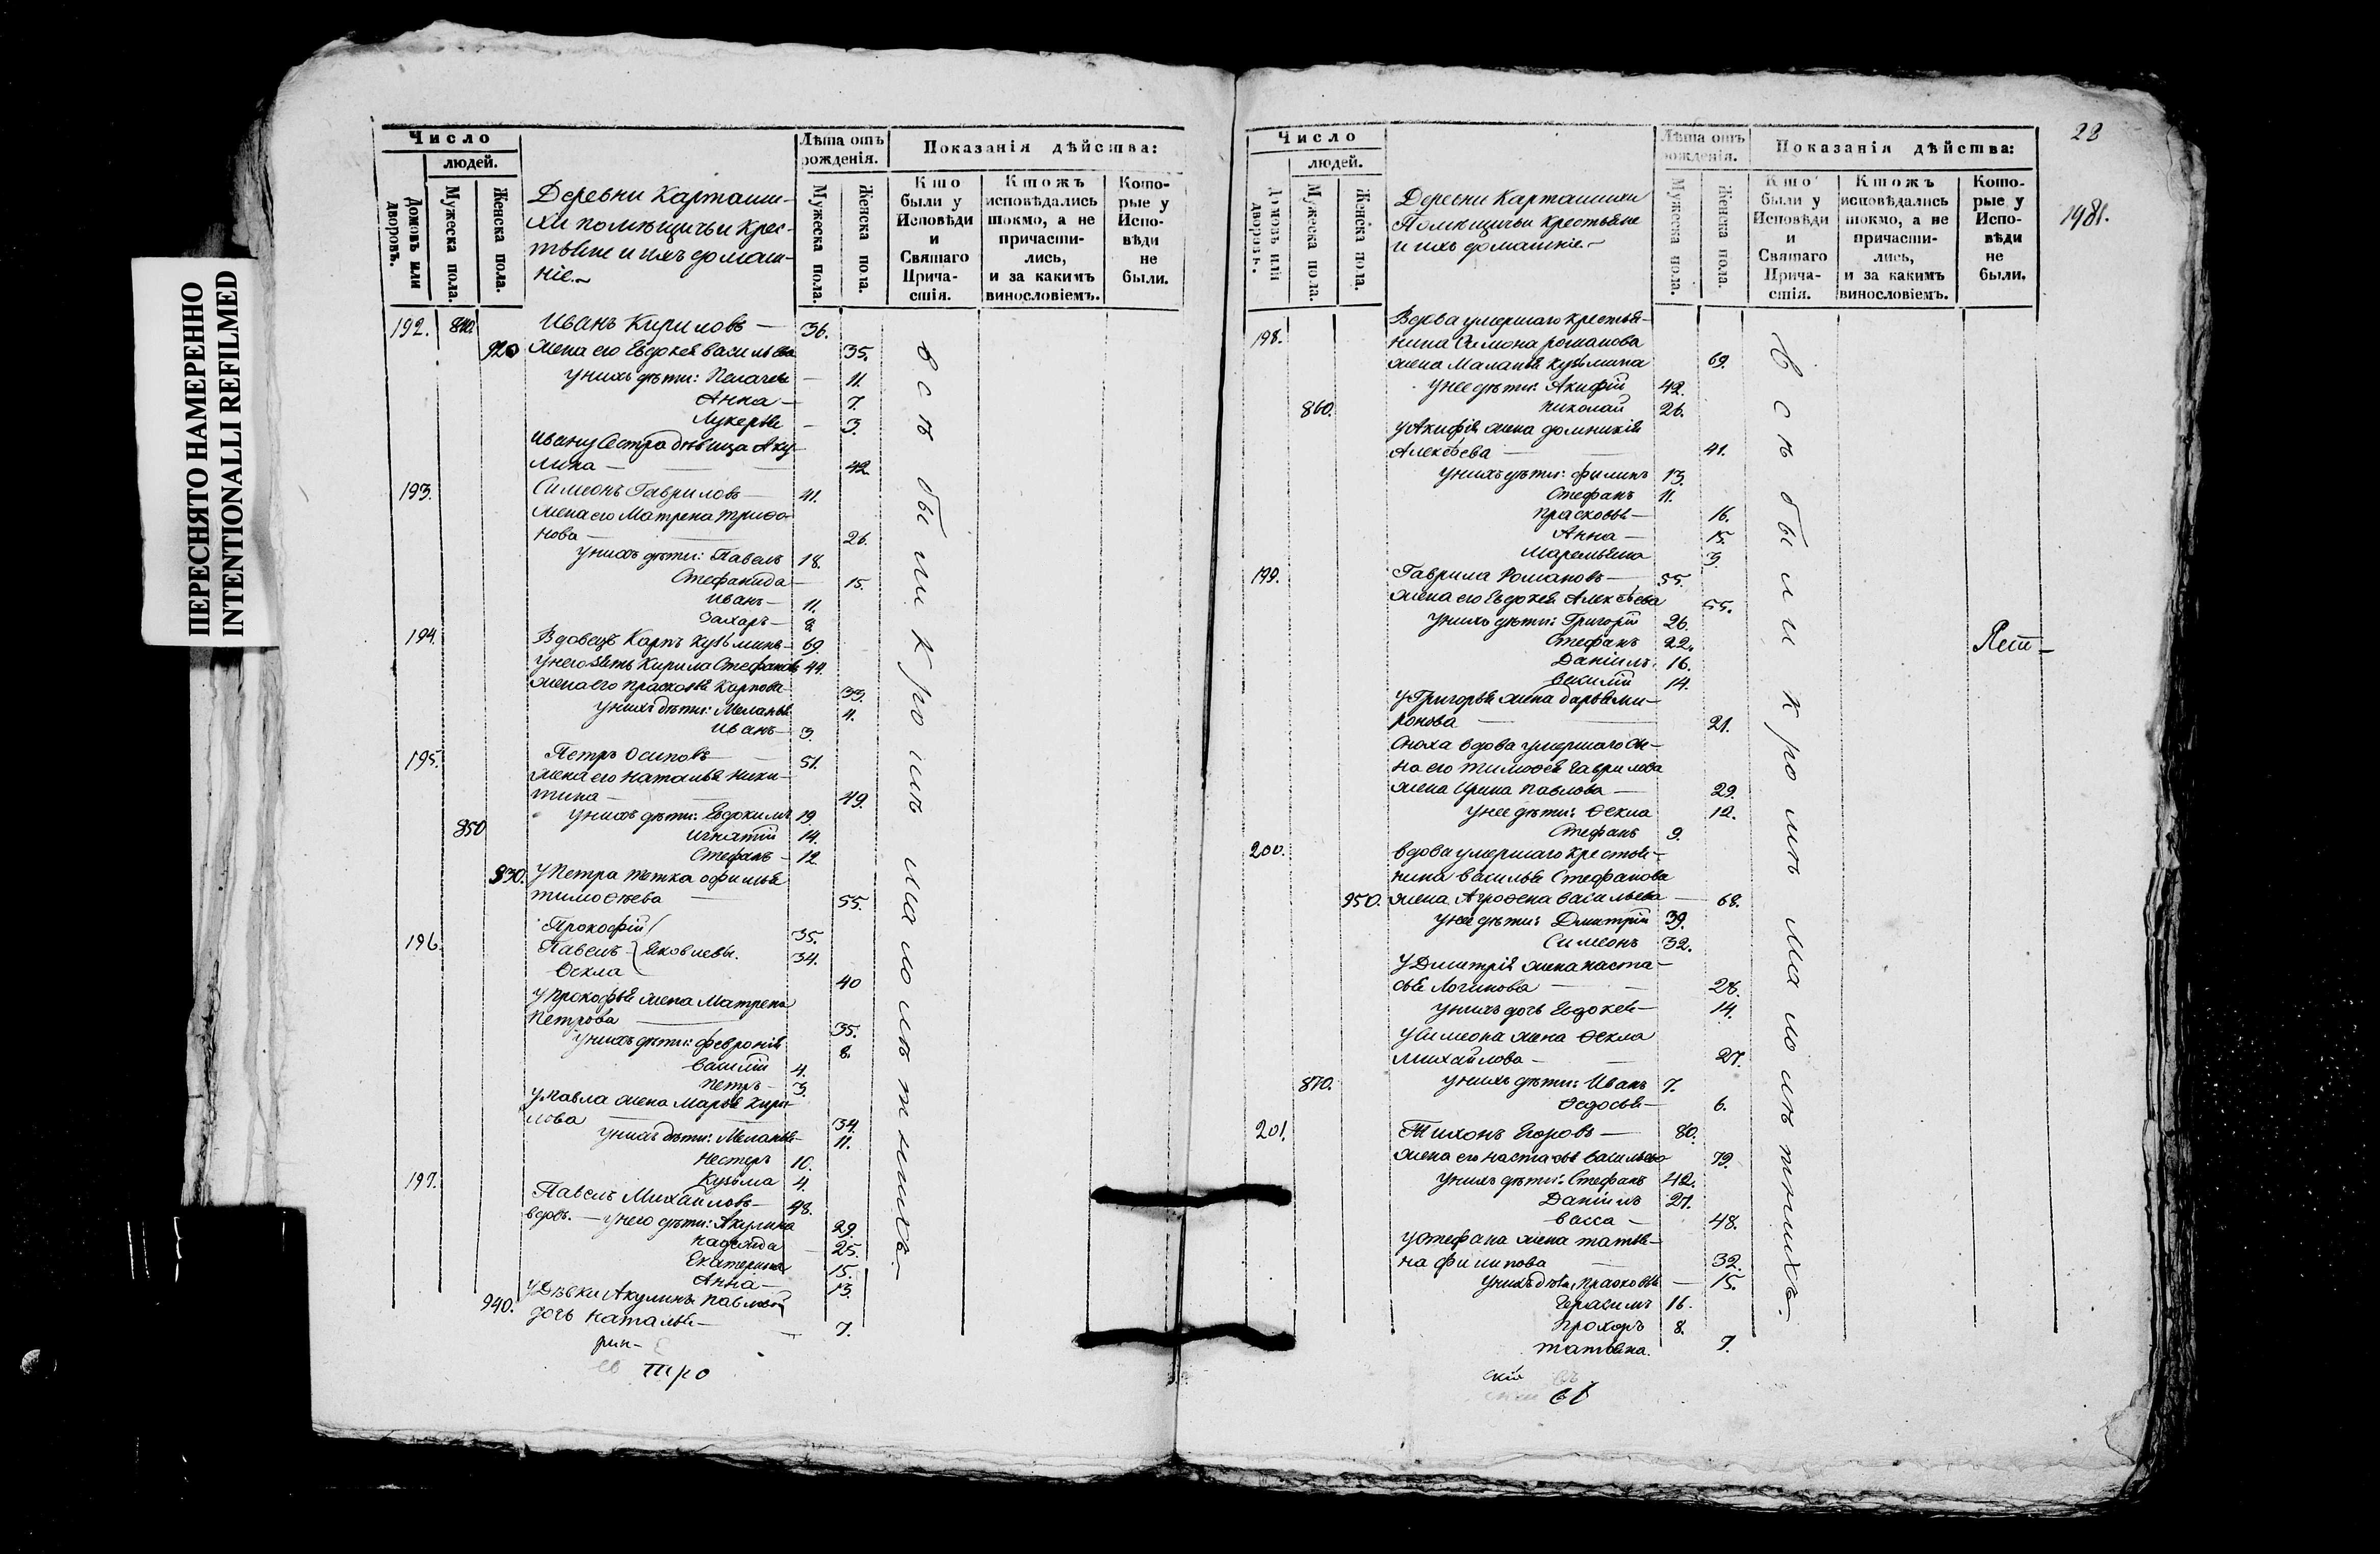 ПЕРЕСНЯТО НАМЕРЕННО
INTENTIONALLI REFILMED
Число
людей.
Домовъ или дворовъ.
Мужеска пола.
Женска пола.
Деревни Карташи-
хи помѣщичьи крес-
тьяне и ихъ домаш-
ніе.~
Лѣта отъ рожденія.
Мужеска пола.
Женска пола.
Показанія дѣйства:
Кто были у Исповѣди и Святаго Прича-стія.
Ктожъ исповѣдались токмо, а не причасти-лись, и за какимъ винословіемъ.
Кото-рые у Испо-вѣди не были.
192. 840. Иванъ Кириловъ — 36.
920 жена его Евдокея Васильева 35.
у нихъ дѣти: Пелагея — 11.
Анна — 7.
Лукерья — 3.
Ивану сестра дѣвица Аку-
лина — 42
193. Симеонъ Гавриловъ — 41.
жена его Матрена Трифо-
нова — 26.
у нихъ дѣти: Павелъ 18.
Стефанида — 15.
Иванъ — 11.
Захаръ — 8.
194. Вдовецъ Карпъ Кузьминъ — 69.
у него зять Кирила Стефановъ 44.
жена его Прасковья Карпова 33.
у нихъ дѣти: Меланья 11.
Иванъ — 3.
195. Петръ Осиповъ — 51.
жена его Наталья Ники-
тина — 49.
у нихъ дѣти: Евдокимъ 19.
850 Игнатій 14.
Стефанъ — 12
930. у Петра тетка Офимья
Тимоѳѣева — 55.
Прокофій 35.
196. Павелъ } Яковлевы. 34.
Ѳекла 40
у Прокофья жена Матрена
Петрова — 35.
у нихъ дѣти: Февронія 8.
Василій 4.
Петръ — 3.
у Павла жена Марья Кири-
лова — 34.
у нихъ дѣти: Меланья — 11.
Нестеръ 10.
Кузьма 4.
197. Павелъ Михайловъ — 48.
вдовъ. — у него дѣти: Акулина 29.
Надежда — 25.
Екатерина 15.
Анна — 13.
у Дѣвки Акулины Павловой
940. дочь Наталья — 7.
всѣ были кромѣ малолѣтнихъ.
тро
28
1981.
Число
людей.
Домовъ или дворовъ.
Мужеска пола.
Женска пола.
Деревни Карташихи
Помѣщичьи крестьяне
и ихъ домашніе.~
Лѣта отъ рожденія.
Мужеска пола.
Женска пола.
Показанія дѣйства:
Кто были у Исповѣди и Святаго Прича-стія.
Ктожъ исповѣдались токмо, а не причасти-лись, и за какимъ винословіемъ.
Кото-рые у Испо-вѣди не были.
Вдова умершаго крестья-
198. нина Симона Романова
жена Маланья Кузьмина 69.
у нее дѣти: Акифій 42.
860. Николай 26.
у Акифія жена Домникія
Алексѣева — 41.
у нихъ дѣти: Филипъ 13.
Стефанъ 11.
Прасковья — 16.
Анна — 15.
Маремьяна 3.
199. Гаврила Романовъ — 55.
жена его Евдокея Алексѣева 55.
у нихъ дѣти: Григорій 26.
Стефанъ 22.
Даніилъ 16.
Василій 14.
у Григорья жена Дарья Ми-
ронова — 21.
Сноха вдова умершаго сы-
на его Тимоѳея Гаврилова
жена Ирина Павлова — 29.
у нее дѣти: Ѳекла 12.
Стефанъ 9.
200. Вдова умершаго крестья-
нина Василья Стефанова
950. жена Агроѳена Васильева — 68.
у нее дѣти: Дмитрій 39.
Симеонъ 32.
у Дмитрія жена Наста-
сья Логинова — 28.
у нихъ дочь Евдокея — 14.
у Симеона жена Ѳекла
Михайлова — 27.
870. у нихъ дѣти: Иванъ 7.
Ѳедосья — 6.
201. Тихонъ Егоровъ — 80.
жена его Настасья Васильева 79.
у нихъ дѣти: Стефанъ 42.
Даніилъ 27.
Васса — 48.
у Стефана жена Татья-
на Филипова — 32.
у нихъ дѣти: Прасковья — 15.
Герасимъ 16.
Прохоръ 8.
Татьяна. 7.
всѣ были кромѣ малолѣтнихъ.
скій